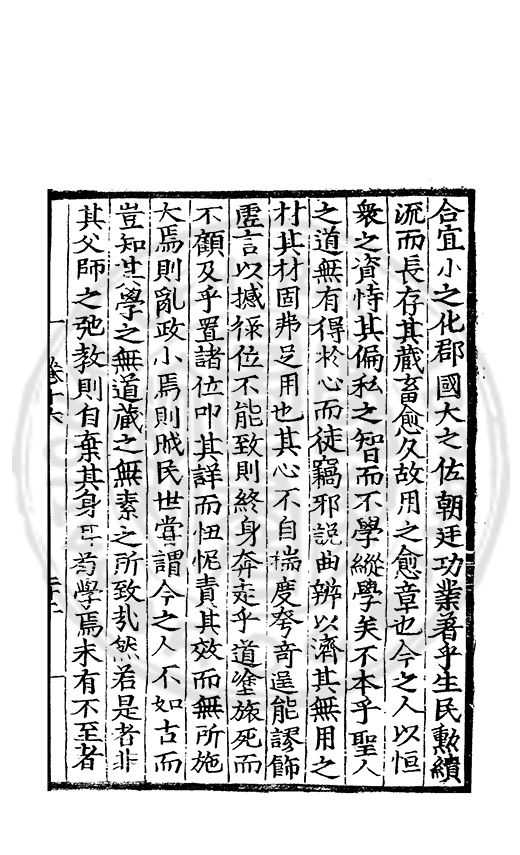 合宜小之化郡國大之佐朝廷功業著乎生民勲績
流而長存其蔵畜愈久故用之愈章也今之人以恒
衆之資恃其偏私之智而不學縱學矣不本乎聖人
之道無有得於心而徒竊邪説曲辨以濟其無用之
材其材固弗足用也其心不自揣度夸奇逞能謬飾
虚言以撼禄位不能致則終身奔走乎道塗旅死而
不顧及乎置諸位叩其詳而忸怩責其效而無所施
大焉則亂政小焉則賊民世嘗謂今之人不如古而
豈知其學之無道蔵之無素之所致㢤然若是者非
其父師之弛教則自棄其身耳苟學焉未有不至者
卷十六
二十二